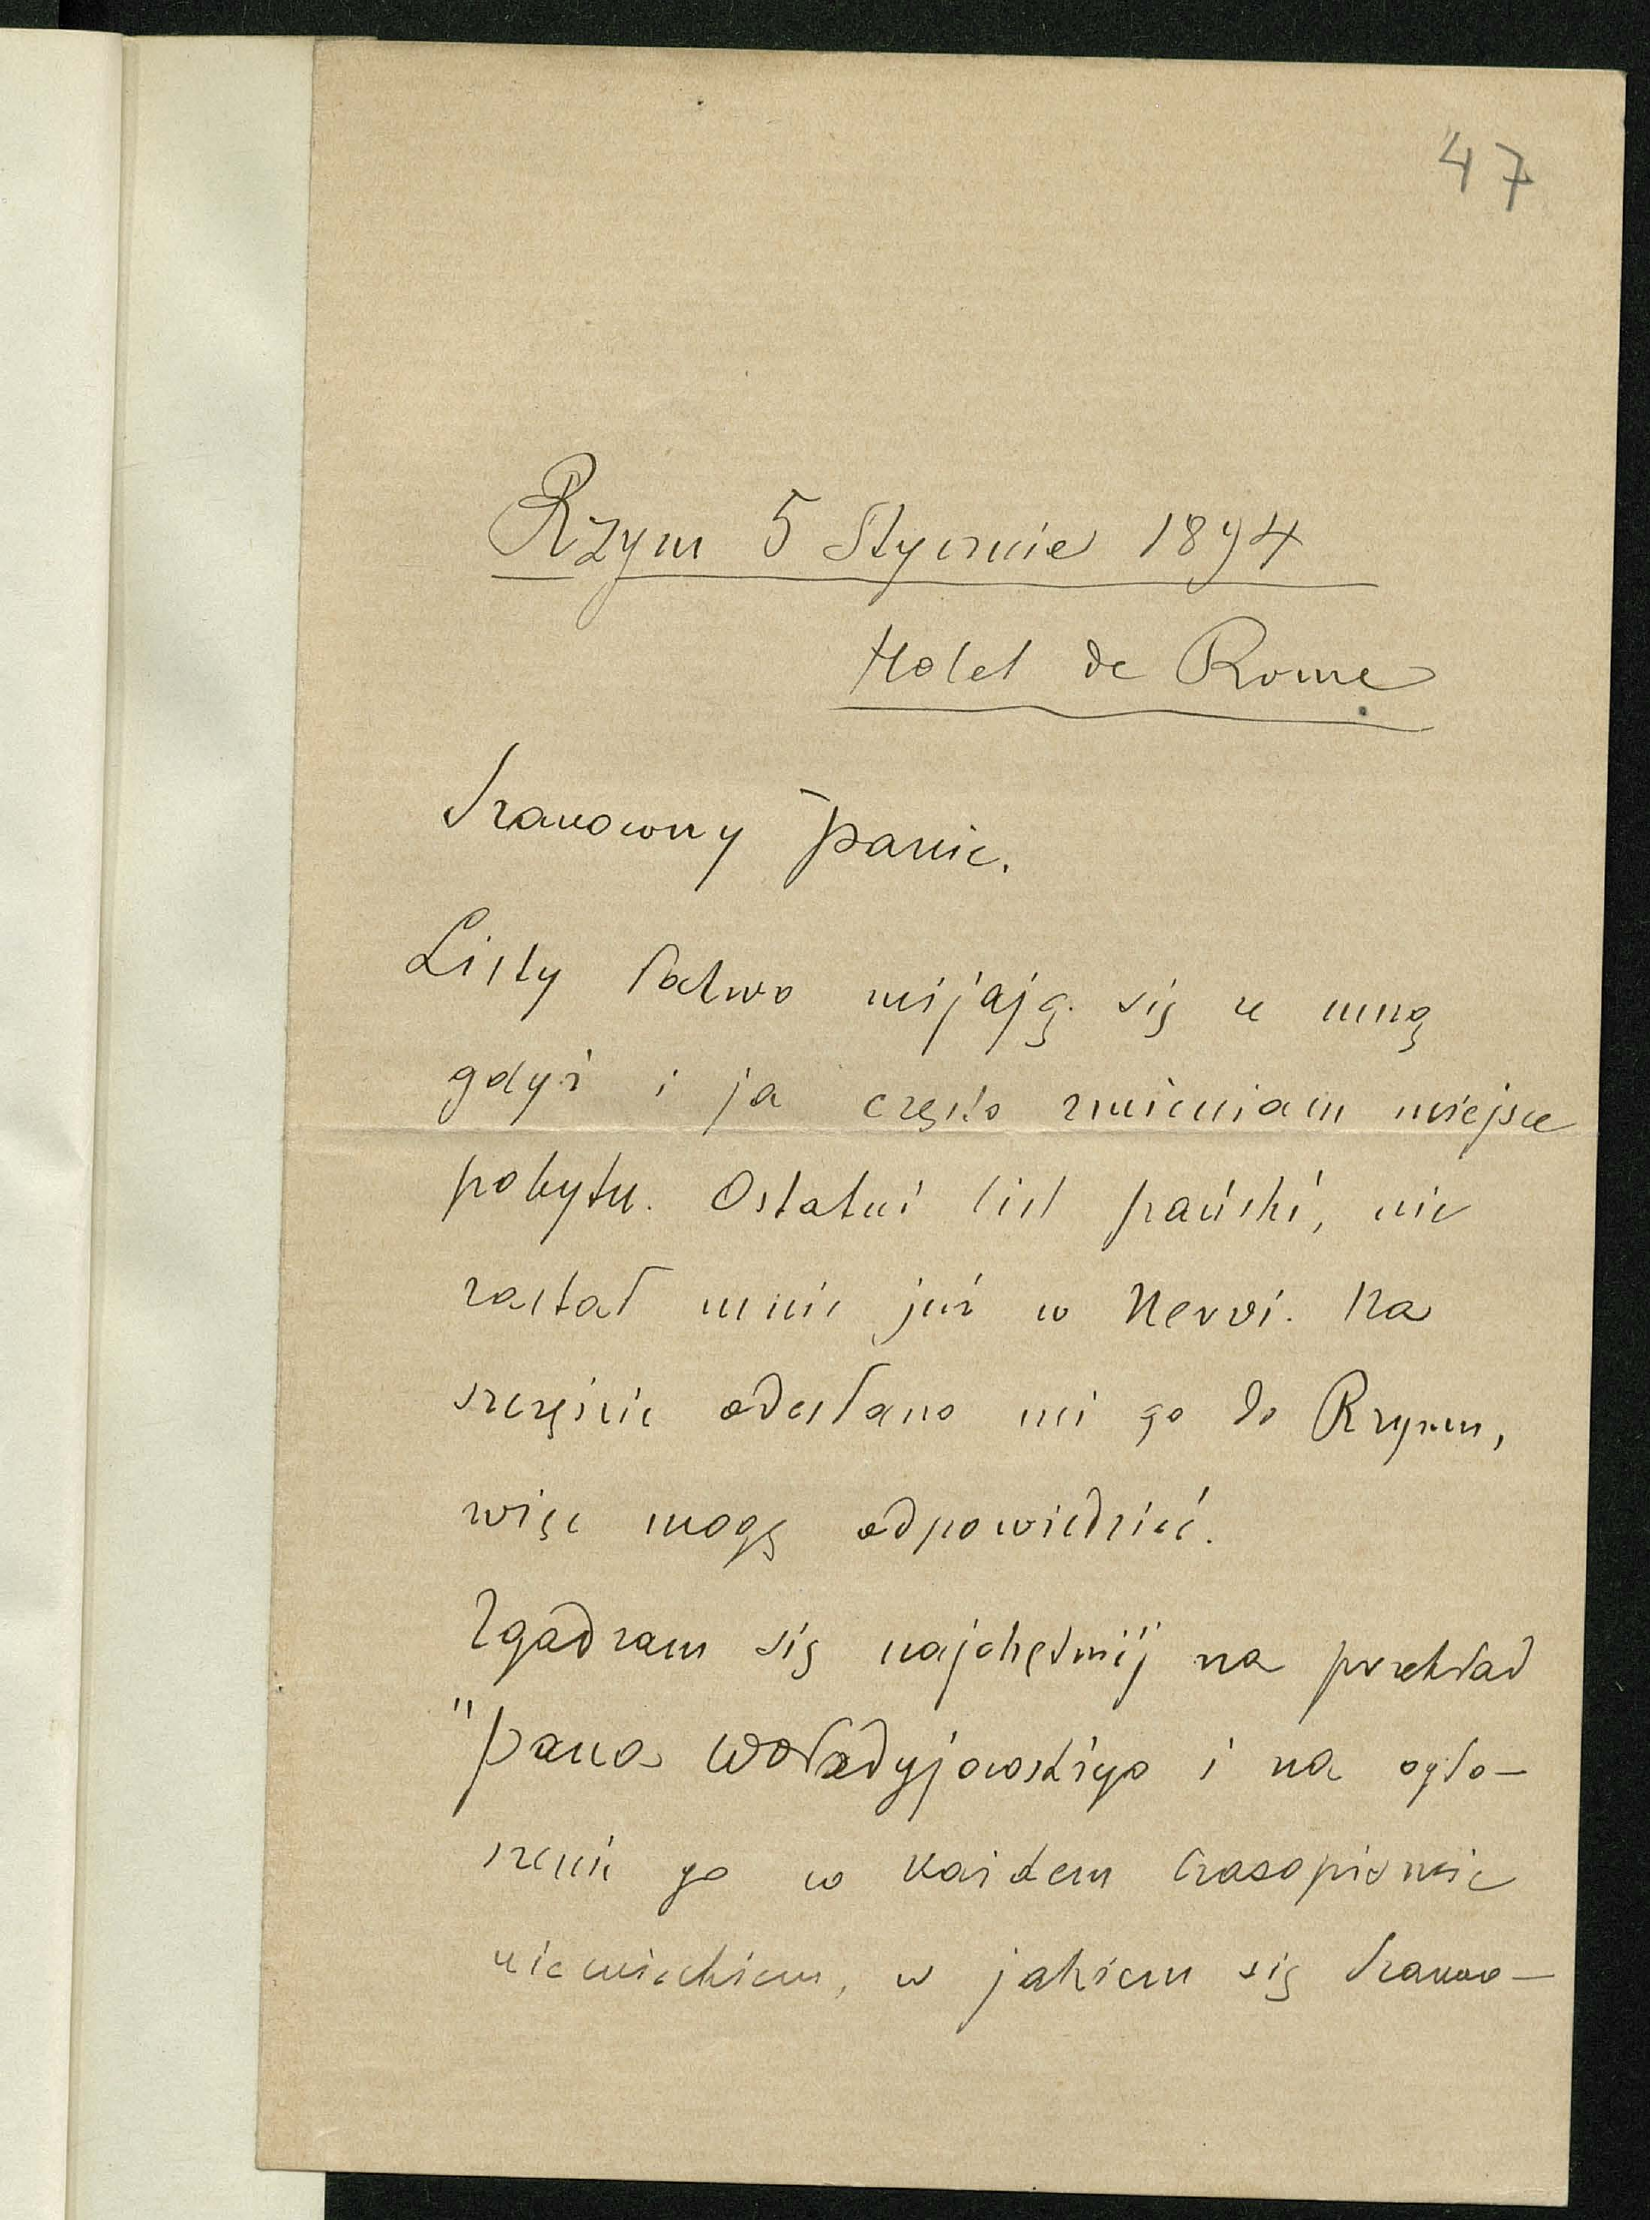 47
Rzym 5 Stycznia 1894
Hotel de Rome
Szanowny Panie.
Listy łatwo mijają się ze mną
gdyż i ja często zmieniam miejsce
pobytu. Ostatni list pański, nie
zastał mnie już w Nervi. Na
szczęście odesłano mi go do Rzymu,
więc mogę odpowiedzieć.
Zgadzam się najchętniej na przekład
"Pana Wołodyjowskiego i na ogło-
szenie go w każdem czasopiśmie
niemieckiem, w jakiem się Szano-